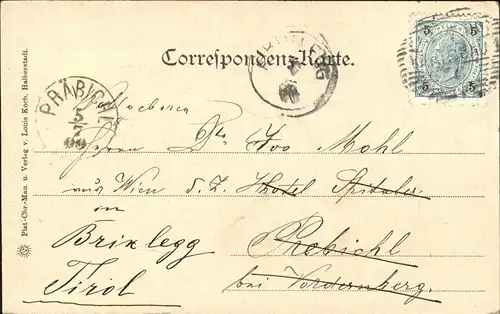 Correspondenz-Karte.
5 5
5 5
PRÄBICHL
5/7
00
Plat-Chr.-Man. u. Verlag v. Louis Koch, Halberstadt.
Herrn Dr. Ivo Mohl
aus Wien d. Z. Hotel Spitaler
in
Brixlegg Prebichl
Tirol bei Vordernberg.